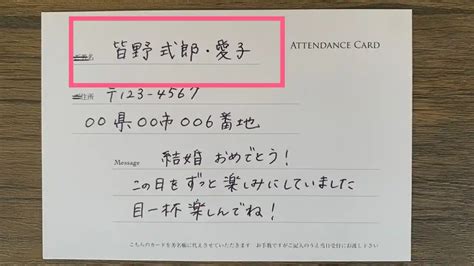 皆野 式郎・愛子
ATTENDANCE CARD
住所 〒123-4567
〇〇県〇〇市〇〇6番地
Message 結婚 おめでとう!
この日をずっと楽しみにしていました
目一杯 楽しんでね!
こちらのカードを芳名帳に代えさせていただきます お手数ですがご記入のうえ当日受付にお渡し下さい